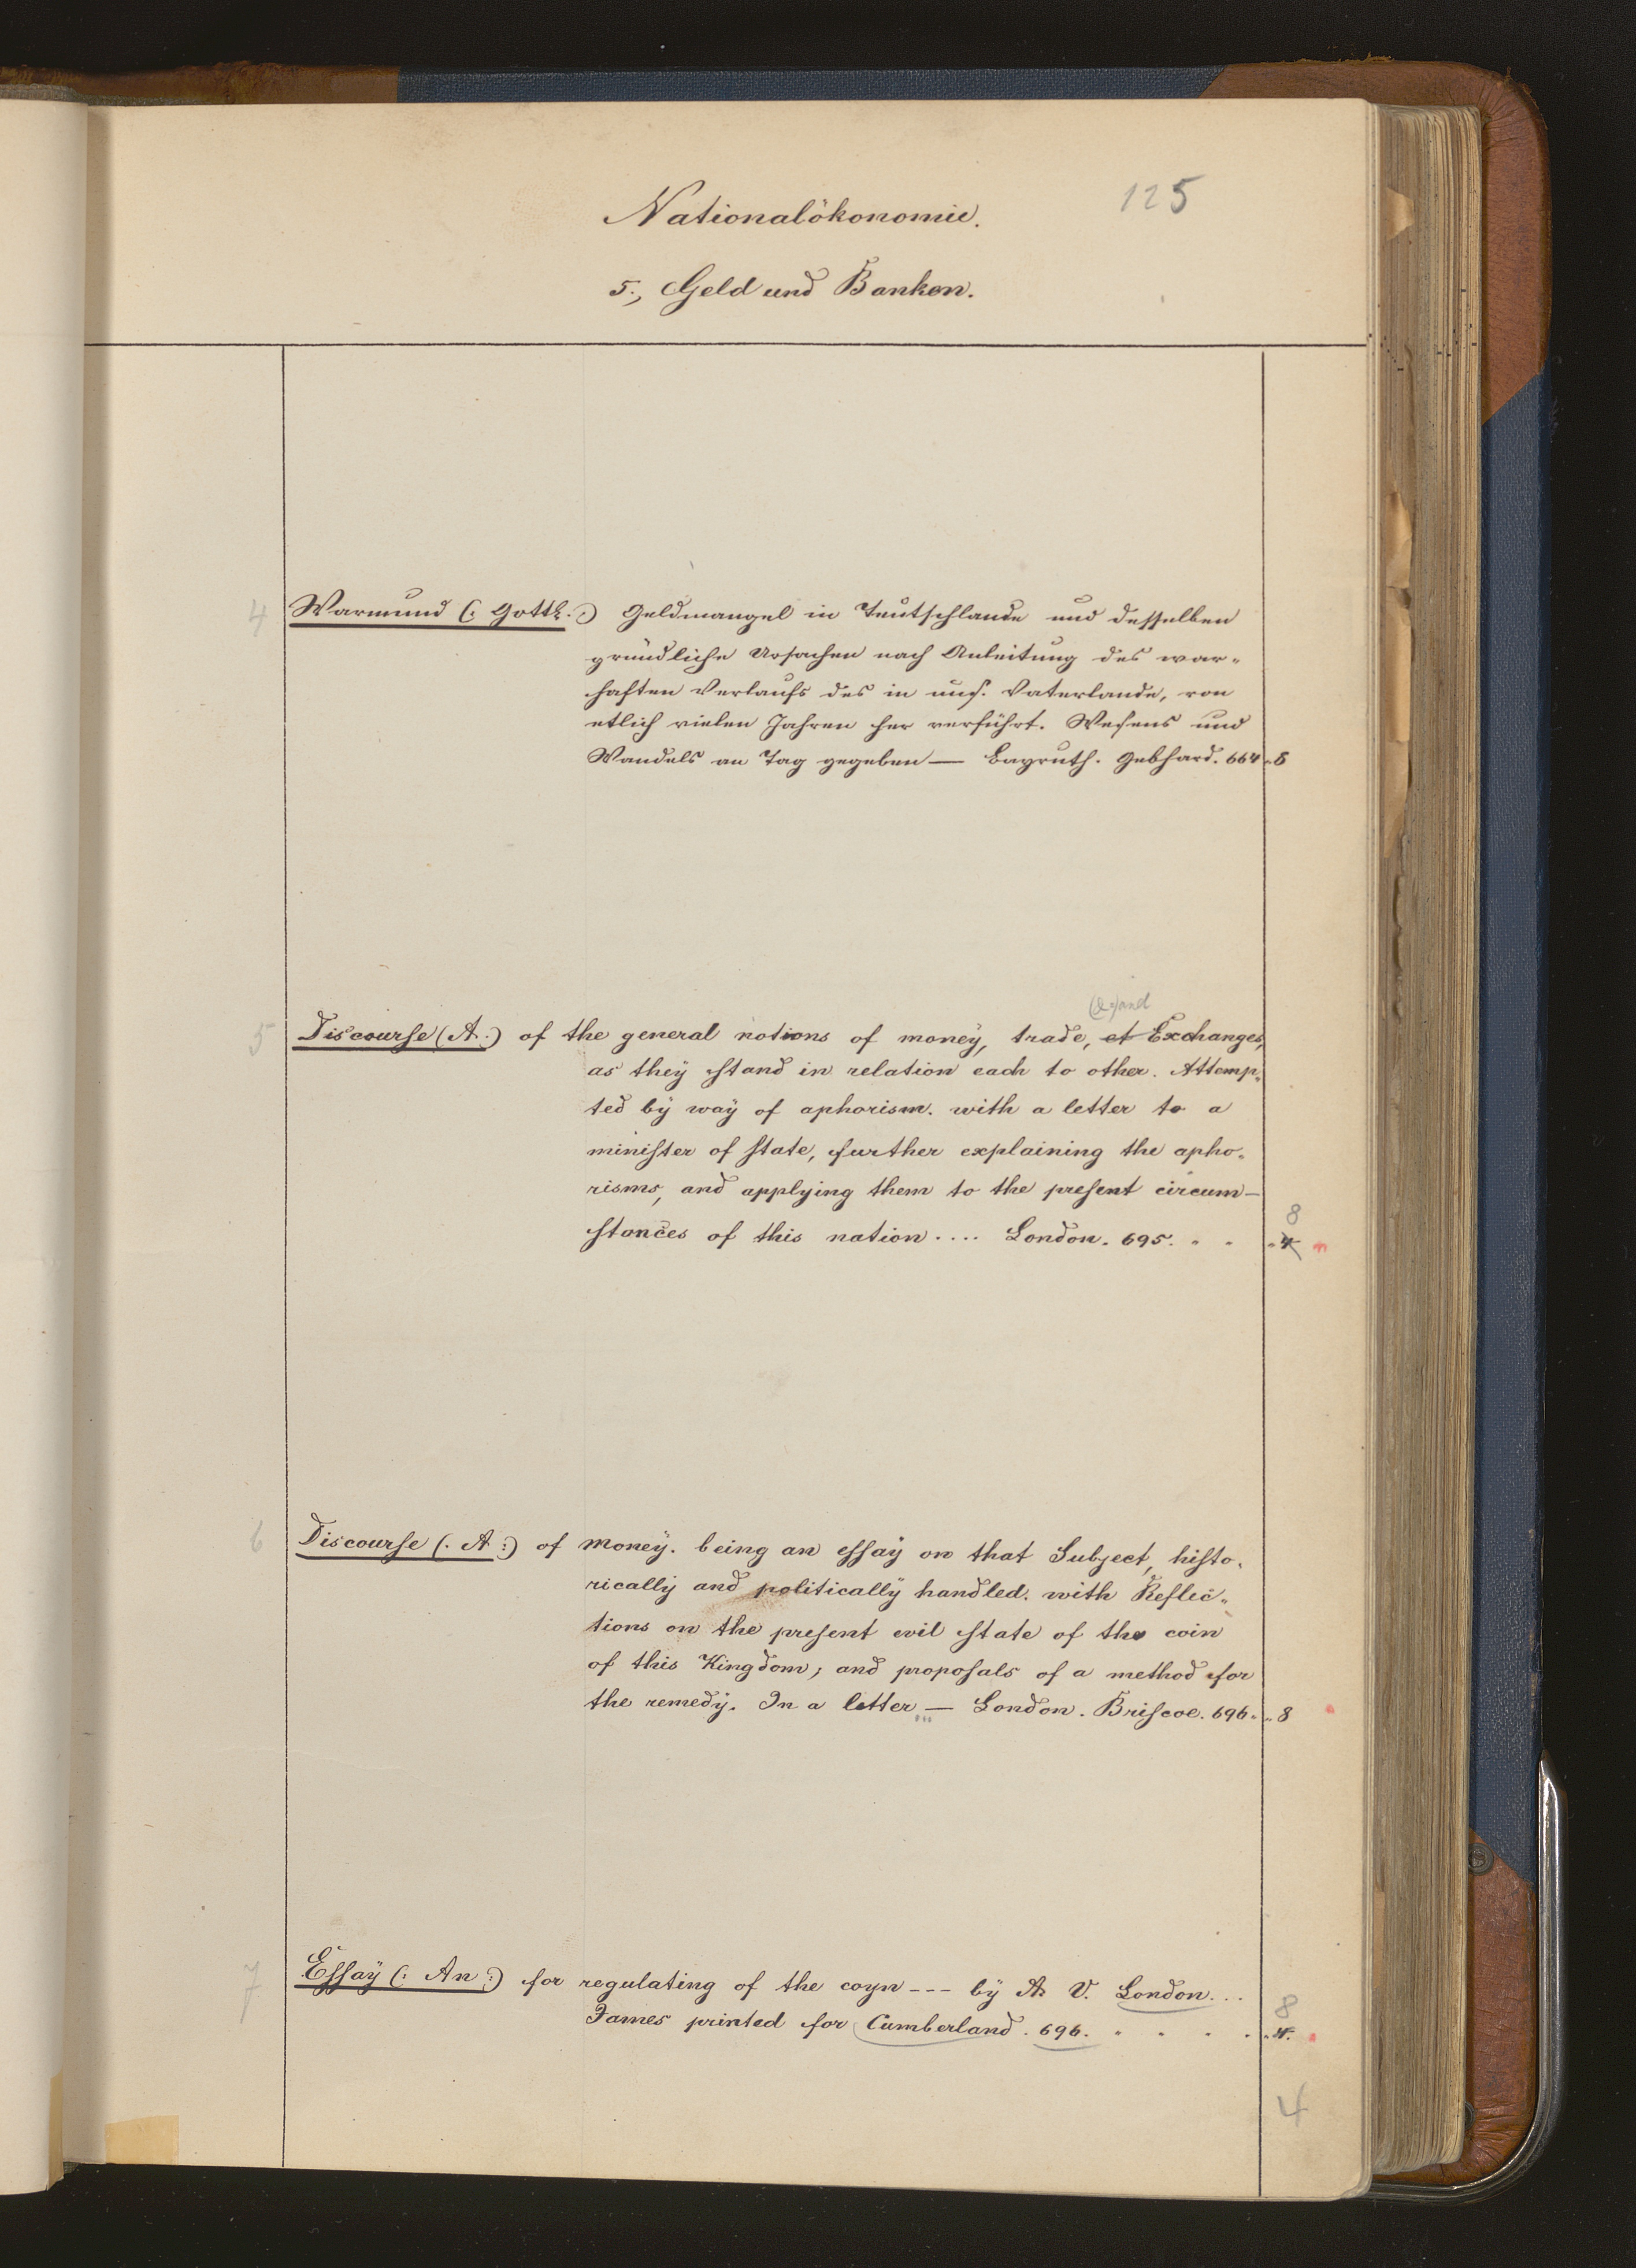 125
Nationalökonomie.
5., Geld und Banken.
4 Warmund (: Gottl. :) Geldmangel in Teutschlande und desselben
gründliche Ursachen nach Anleitung des war-
haften Verlaufs des in uns. Vaterlande, von
etlich vielen Jahren her verführt. Wesens und
Wandels an Tag gegeben — Bayruth. Gebhard. 664 „ 8
(&:) and
5 Discourse (A:) of the general notions of money, trade, et Exchanges,
as they stand in relation each to other. Attemp-
ted by way of aphorism. with a letter to a
minister of state, further explaining the apho-
risms, and applying them to the present circum-
8
stances of this nation .... London. 695. „ „ „ 4
6 Discourse (: A :) of money. being an essay on that Subject, histo-
rically and politically handled. with Reflec-
tions on the present evil state of the coin
of this Kingdom; and proposals of a method for
the remedy. In a letter ... — London. Briscoe. 696. „ 8
7 Essay (: An :) for regulating of the coyn --- by A V. London...
8
James printed for Cumberland. 696. „ „ „ „ „ 4.
4